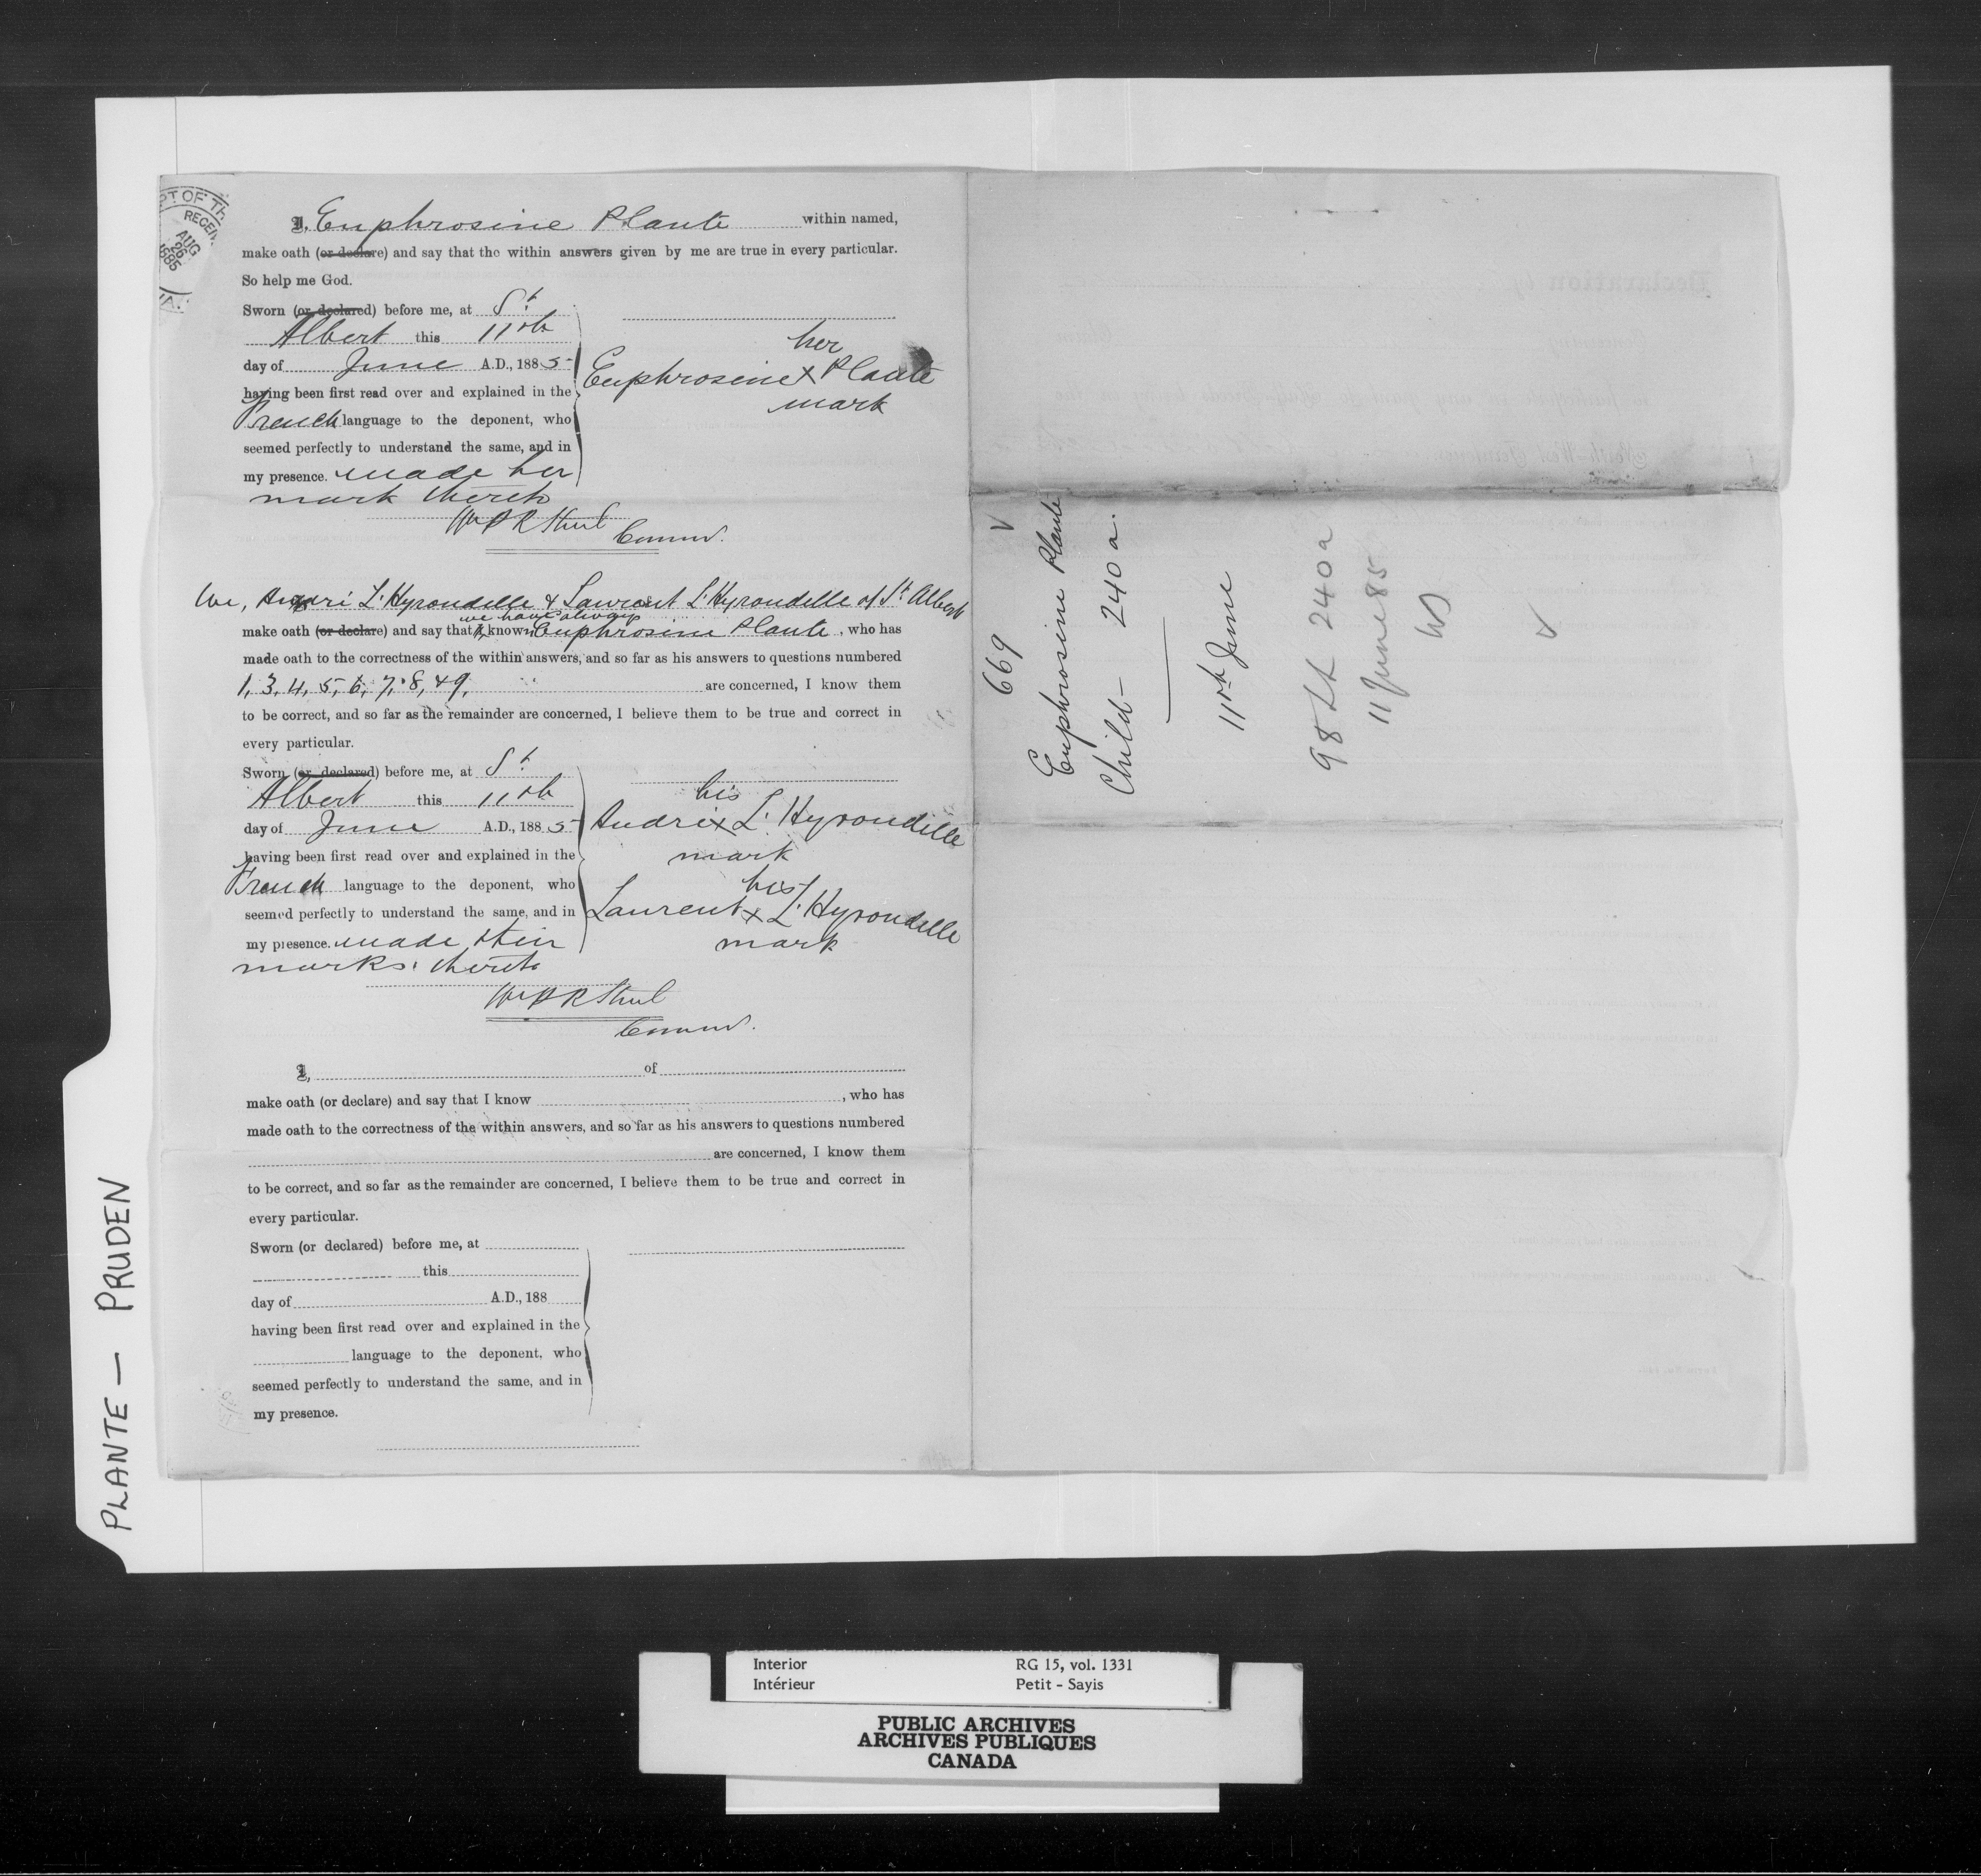 PT OF TH
RECEI
AUG
26
1885
I, Euphrosine Plante within named,
make oath (or declare) and say that the within answers given by me are true in every particular.
So help me God.
Sworn (or declared) before me, at St.
Albert this 11th
day of June A.D., 1885
having been first read over and explained in the
French language to the deponent, who
seemed perfectly to understand the same, and in
my presence. made her
mark thereto
her
Euphrosine x Plante
mark
Comm.
We, André L'Hyrondelle & Laurent L'Hyrondelle of St. Albert
we have always
make oath (or declare) and say that I known Euphrosine Plante, who has
made oath to the correctness of the within answers, and so far as his answers to questions numbered
1, 3, 4, 5, 6, 7, 8, & 9, are concerned, I know them
to be correct, and so far as the remainder are concerned, I believe them to be true and correct in
every particular.
Sworn (or declared) before me, at St.
Albert this 11th
day of June A.D., 1885
having been first read over and explained in the
French language to the deponent, who
seemed perfectly to understand the same, and in
my presence. made their
marks thereto
his
André x L'Hyrondelle
mark
his
Laurent x L'Hyrondelle
mark
Comm.
I, of
make oath (or declare) and say that I know , who has
made oath to the correctness of the within answers, and so far as his answers to questions numbered
are concerned, I know them
to be correct, and so far as the remainder are concerned, I believe them to be true and correct in
every particular.
Sworn (or declared) before me, at
this
day of A.D., 188
having been first read over and explained in the
language to the deponent, who
seemed perfectly to understand the same, and in
my presence.
669
Euphrosine Plante
Child - 240 a.
11th June
98 240 a
11 June 85
PLANTE — PRUDEN
Interior RG 15, vol. 1331
Intérieur Petit - Sayis
PUBLIC ARCHIVES
ARCHIVES PUBLIQUES
CANADA